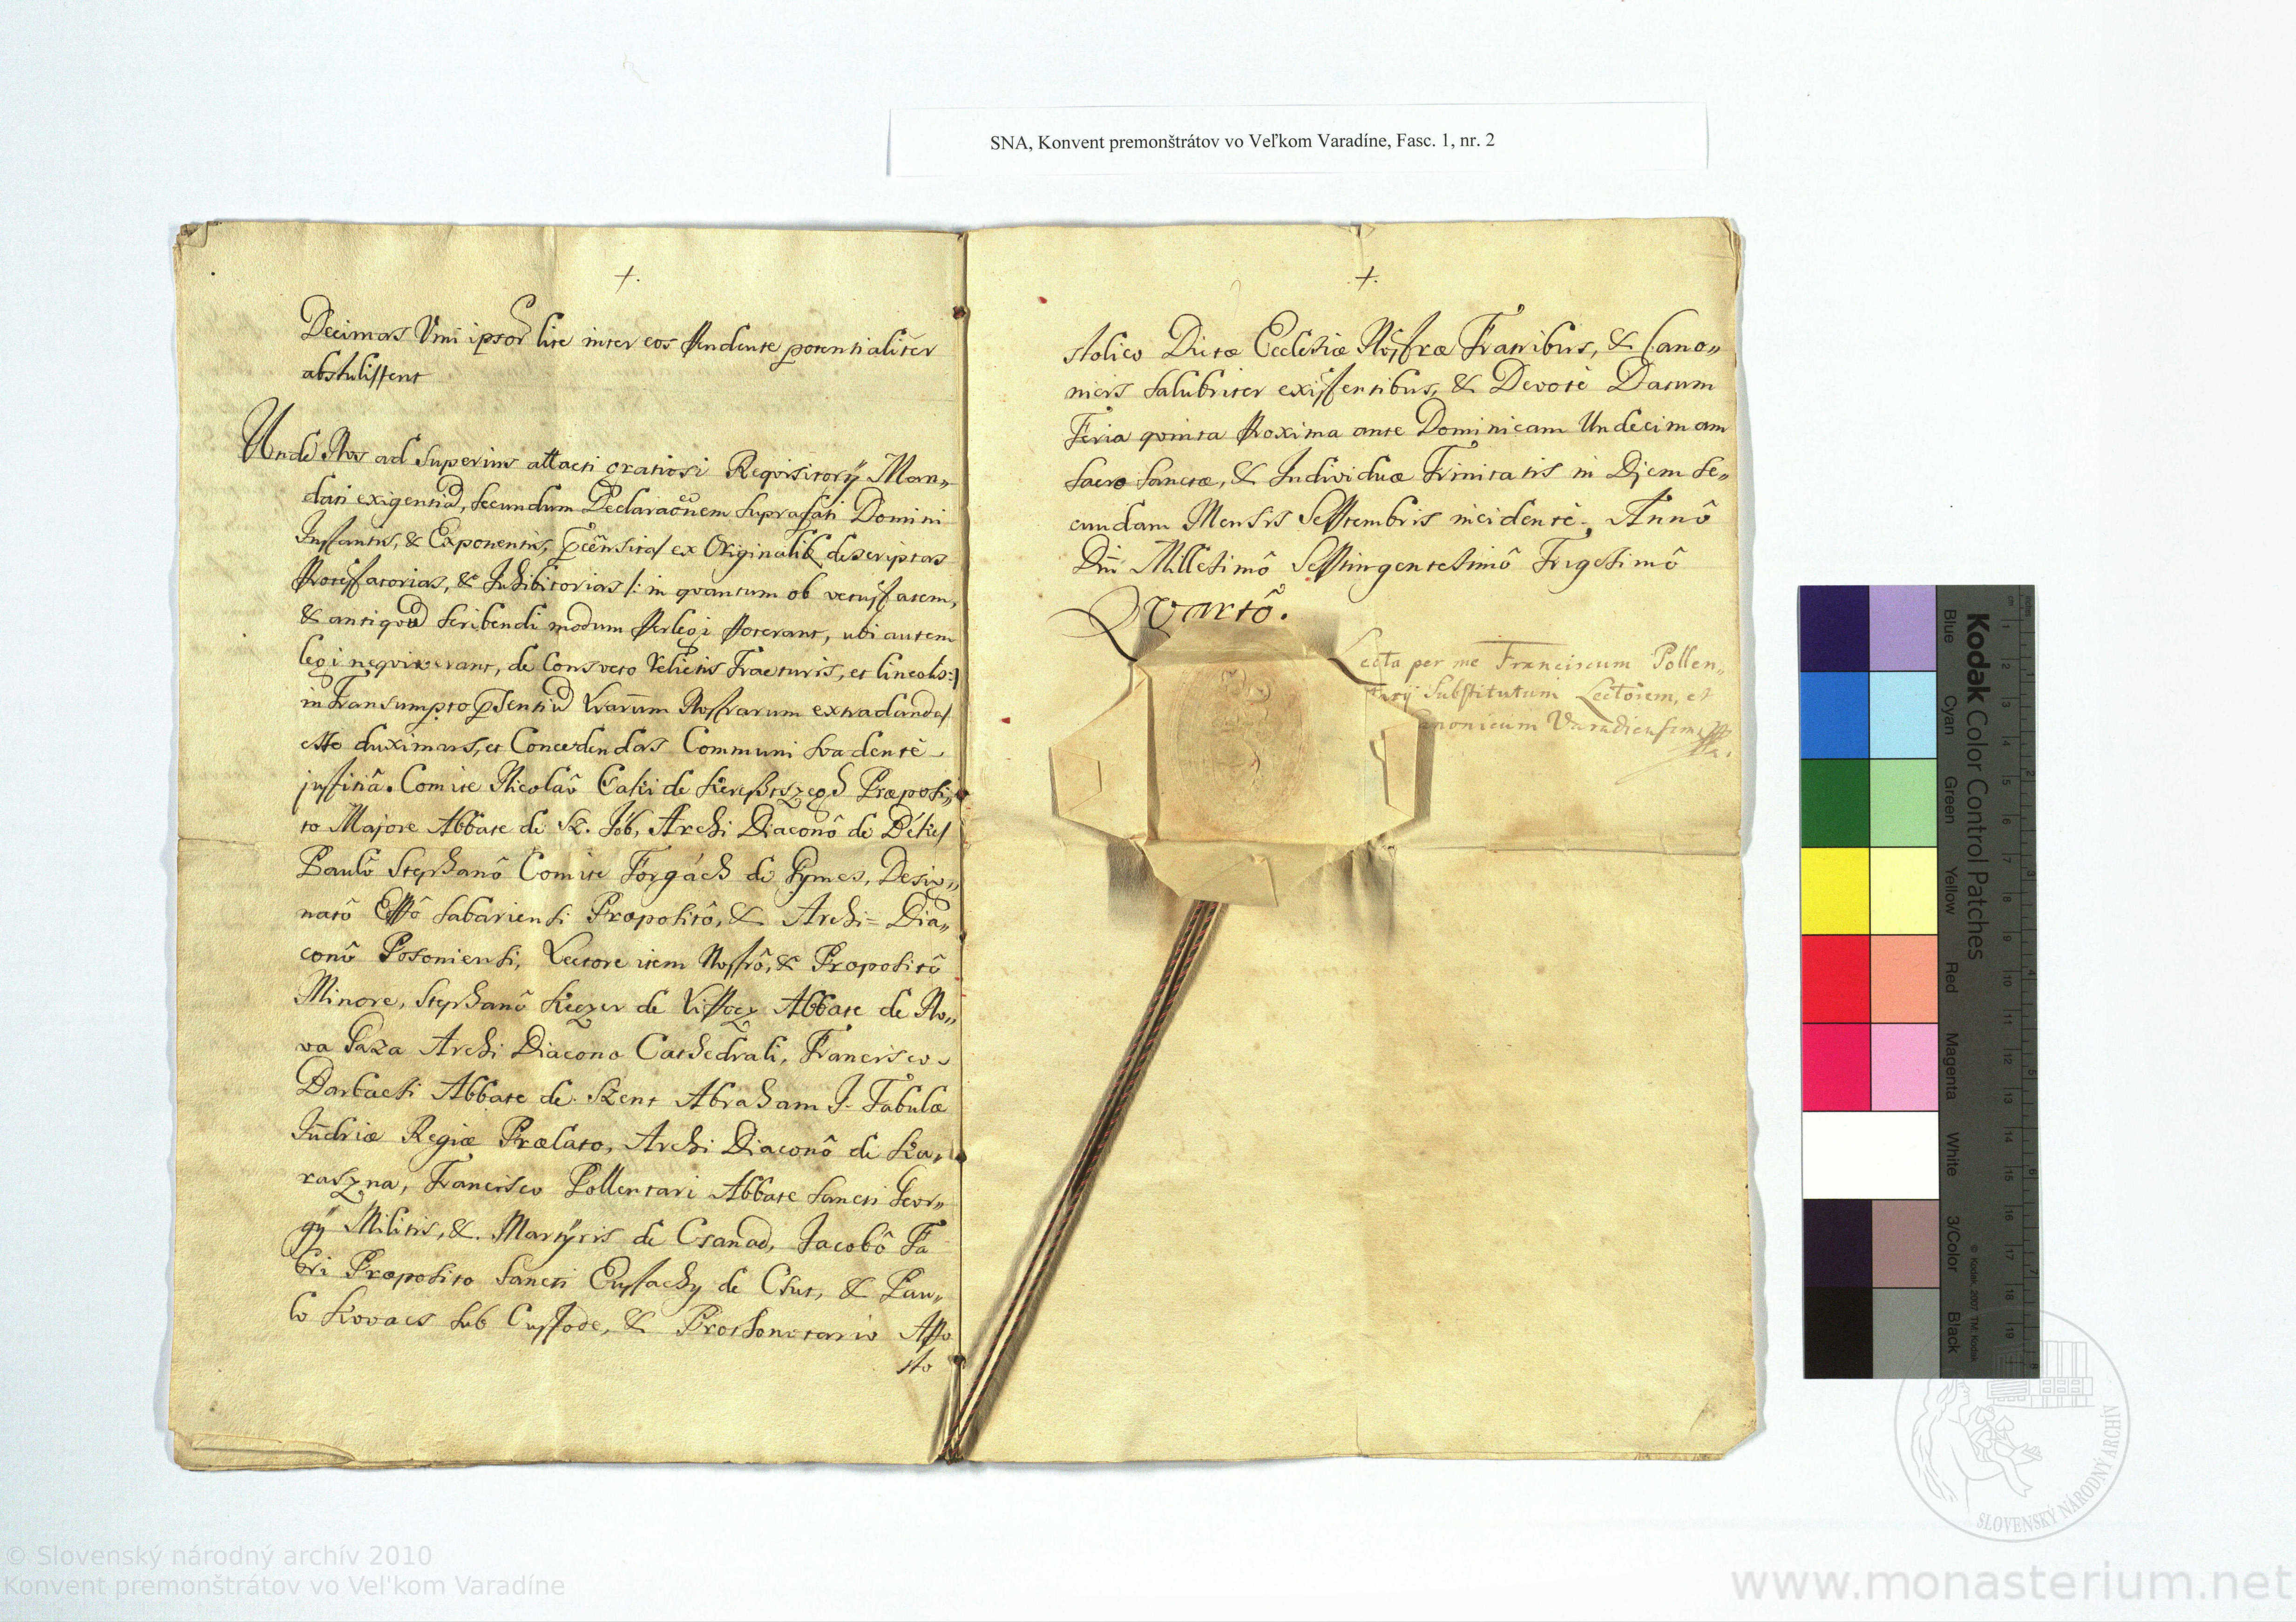 SNA, Konvent premonštrátov vo Veľkom Varadíne, Fasc. 1, nr. 2
+.
Decimas Vini ipsor lite inter eos pendente potentialiter
abstulissent
Unde Nos ad superius attacti gratiosi Requisitorÿ Man„
dati exigentia, secundum Declaraõnem suprafati Domini
Instantis, & Exponentis, ex Originalib descriptas
Protestatorias, & Inhibitorias /: in quantum ob vetustatem,
& antiquũ scribendi modum perlegi poterant, ubi autem
legi nequiverant, de Consveto relictis Fracturis, et lineolis :/
in Transumpto Nostrarum extradandas
esse duximus, et Concedendas Communi svadente
justitiâ. Comite Nicolaô Csaki de Keresztszegh Præposi„
to Majore Abbate de Sz. Jób, Archi Diaconô de Békes
Paulô Stephanô Comite Forgách de Gymes, Desig„
natô Eppô Sabariensi Præpositô, & Archi= Dia„
conô Posoniensi, Lectore item Nostrô, & Præpositô
Minore, Stephanô Keczer de Lipocz Abbate de No„
va Paza Archi Diacono Cathedrali, Francisco
Barbacsi Abbate de Szent Abraham I. Tabulæ
Judriæ Regiæ Prælato, Archi Diaconô de Kra„
raszna, Francisco Pollentari Abbate Sancti Geor„
gÿ Militis, &. Martÿris de Csanad, Jacobô Fa
bri Præposito Sancti Eustachÿ de Csut, & Pau„
lo Kovacs sub Custode, & Prothonotario Apo
sto
+.
stolico Dictæ Ecclesiæ Nostræ Fratribus, & Cano„
nicis salubriter existentibus, & Devotè Datum
Feria quinta proxima ante Dominicam Undecimam
Sacro Sanctæ, & Individuæ Trinitatis in Diem se„
cundam Mensis Septembris incidentè. Annô
Dni Millesimô Septingentesimô Trigesimô
Qvartô.
Lecta per me Franciscum Pollen„
tarÿ Substitutum Lectorem, et
anonicum Varadiensem
Kodak Color Control Patches
Blue
Cyan
Green
Yellow
Red
Magenta
White
3/Color
Black
© Kodak, 2007 TM: Kodak
SLOVENSKÝ NÁRODNÝ ARCHÍV
© Slovenský národný archív 2010
Konvent premonštrátov vo Vel'kom Varadíne
www.monasterium.net